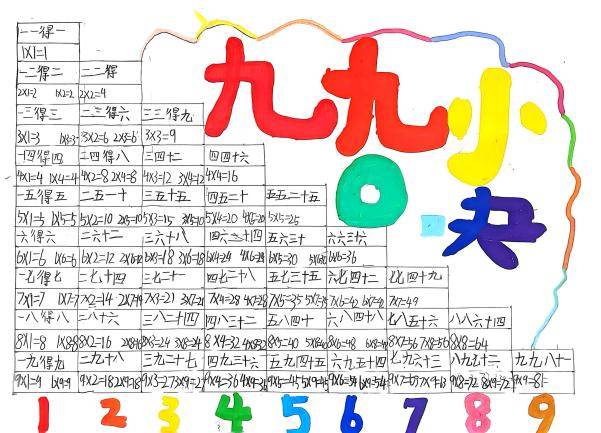 一一得一
1X1=1
一二得二 二二得
2X1=2 1X2=2 2X2=4
一三得三 二三得六 三三得九
3X1=3 1X3=3 3X2=6 2X3=6 3X3=9
一四得四 二四得八 三四十二 四四十六
4X1=4 1X4=4 4X2=8 2X4=8 4X3=12 3X4=12 4X4=16
一五得五 二五一十 三五十五 四五二十 五五二十五
5X1=5 1X5=5 5X2=10 2X5=10 5X3=15 3X5=15 5X4=20 4X5=20 5X5=25
六得六 二六十二 三六十八 四六二十四 五六三十 六六三十六
6X1=6 1X6=6 6X2=12 2X6=12 6X3=18 3X6=18 6X4=24 4X6=24 6X5=30 6X6=36
一七得七 二七十四 三七二十一 四七二十八 五七三十五 六七四十二 七七四十九
7X1=7 1X7=7 7X2=14 2X7=14 7X3=21 3X7=21 7X4=28 4X7=28 7X5=35 5X7=35 7X6=42 6X7=42 7X7=49
一八得八 二八十六 三八二十四 四八三十二 五八四十 六八四十八 七八五十六 八八六十四
8X1=8 1X8=8 8X2=16 2X8=16 8X3=24 3X8=24 8X4=32 4X8=32 8X5=40 5X8=40 8X6=48 6X8=48 8X7=56 7X8=56 8X8=64
一九得九 二九十八 三九二十七 四九三十六 五九四十五 六九五十四 七九六十三 八九七十二 九九八十一
9X1=9 9X2=18 2X9=18 9X3=27 3X9=27 9X4=36 4X9=36 9X5=45 5X9=45 9X6=54 6X9=54 9X7=63 7X9=63 9X8=72 8X9=72 9X9=81
九九小
口诀
1 2 3 4 5 6 7 8 9